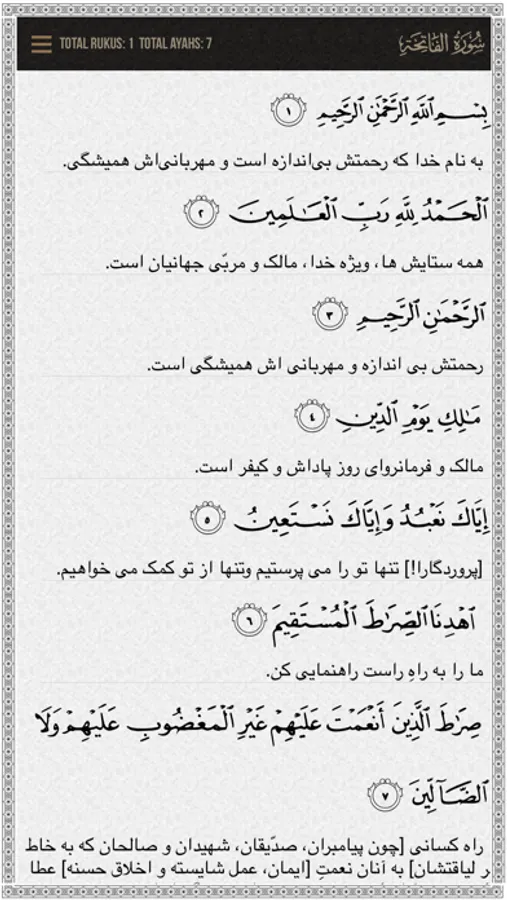 TOTAL RUKUS: 1 TOTAL AYAHS: 7
سُورَةُ الفَاتِحَة
بِسْمِ ٱللَّهِ ٱلرَّحْمَٰنِ ٱلرَّحِيمِ ١
به نام خدا که رحمتش بی‌اندازه است و مهربانی‌اش همیشگی.
ٱلْحَمْدُ لِلَّهِ رَبِّ ٱلْعَٰلَمِينَ ٢
همه ستایش ها، ویژه خدا، مالک و مربّی جهانیان است.
ٱلرَّحْمَٰنِ ٱلرَّحِيمِ ٣
رحمتش بی اندازه و مهربانی اش همیشگی است.
مَٰلِكِ يَوْمِ ٱلدِّينِ ٤
مالک و فرمانروای روز پاداش و کیفر است.
إِيَّاكَ نَعْبُدُ وَإِيَّاكَ نَسْتَعِينُ ٥
[پروردگارا!] تنها تو را می پرستیم وتنها از تو کمک می خواهیم.
ٱهْدِنَا ٱلصِّرَٰطَ ٱلْمُسْتَقِيمَ ٦
ما را به راهِ راست راهنمایی کن.
صِرَٰطَ ٱلَّذِينَ أَنْعَمْتَ عَلَيْهِمْ غَيْرِ ٱلْمَغْضُوبِ عَلَيْهِمْ وَلَا
ٱلضَّآلِّينَ ٧
راه کسانی [چون پیامبران، صدّیقان، شهیدان و صالحان که به خاط
ر لیاقتشان] به آنان نعمتِ [ایمان، عمل شایسته و اخلاق حسنه] عطا